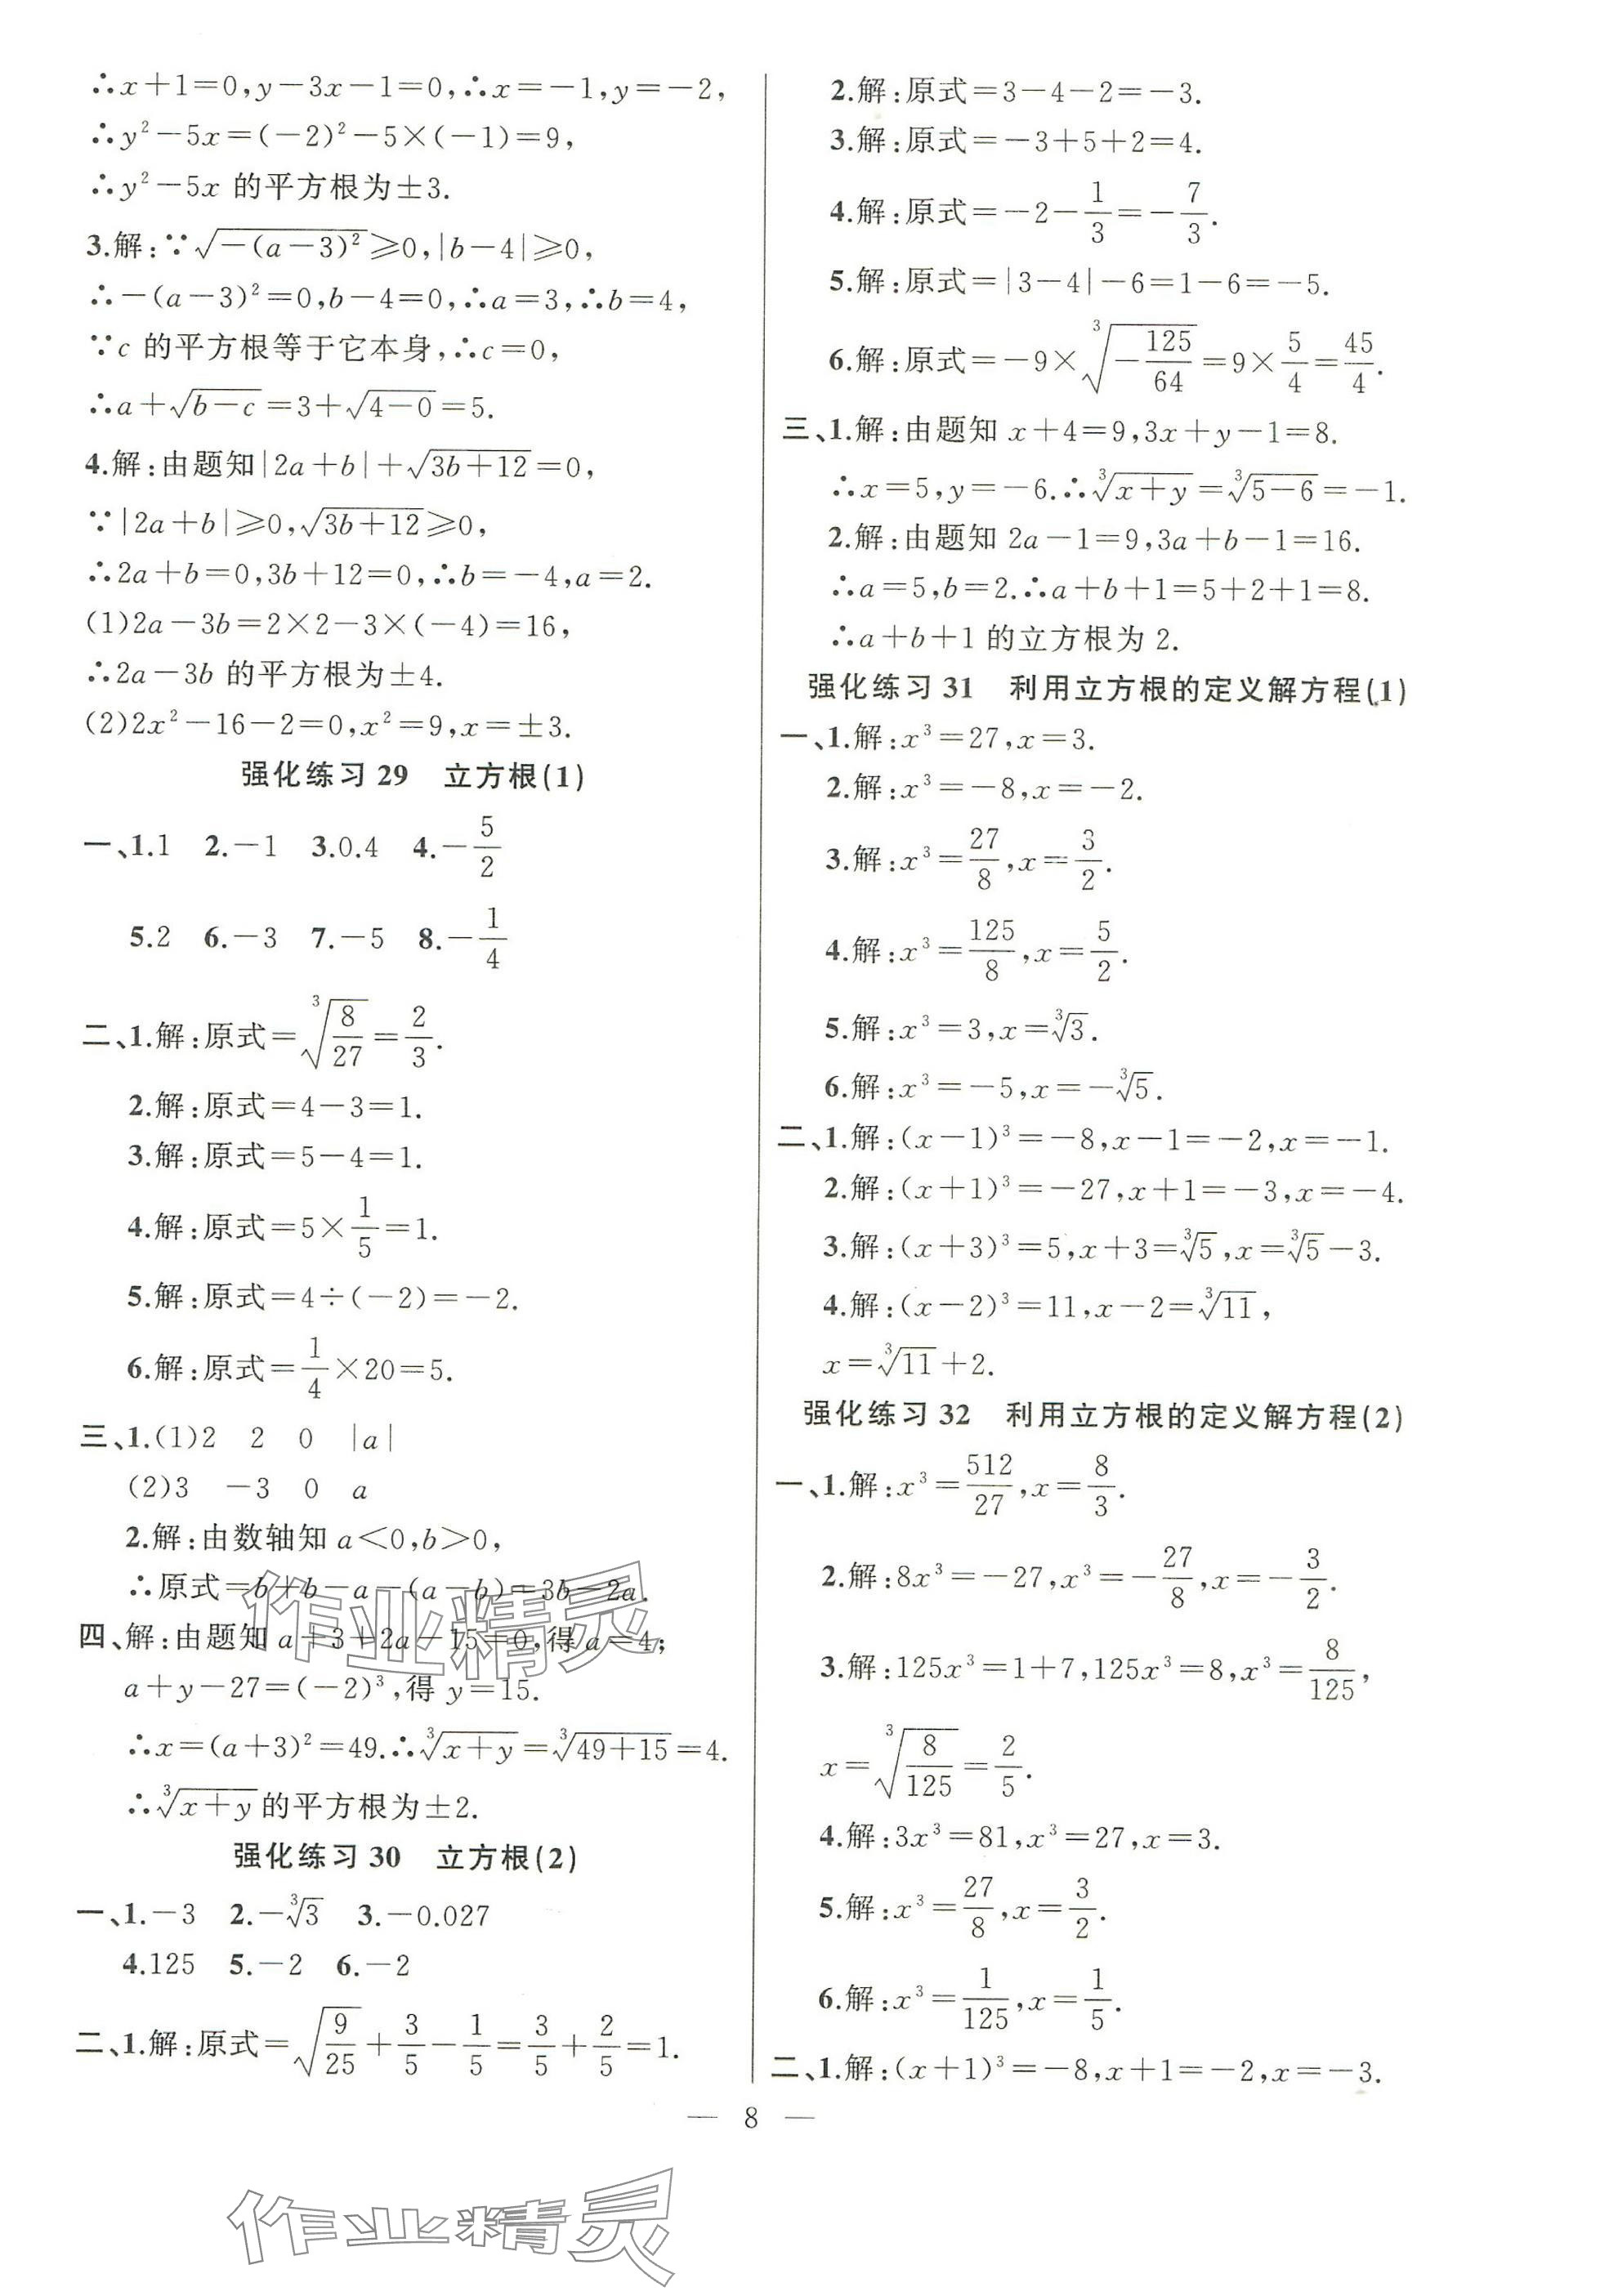 ∴x+1=0,y-3x-1=0,∴x=-1,y=-2,
∴y²-5x=(-2)²-5×(-1)=9,
∴y²-5x 的平方根为±3.
3.解:∵√(-(a-3)²)≥0,|b-4|≥0,
∴-(a-3)²=0,b-4=0,∴a=3,∴b=4,
∵c 的平方根等于它本身,∴c=0,
∴a+√(b-c)=3+√(4-0)=5.
4.解:由题知|2a+b|+√(3b+12)=0,
∵|2a+b|≥0,√(3b+12)≥0,
∴2a+b=0,3b+12=0,∴b=-4,a=2.
(1)2a-3b=2×2-3×(-4)=16,
∴2a-3b 的平方根为±4.
(2)2x²-16-2=0,x²=9,x=±3.
强化练习 29 立方根(1)
一、1.1 2.-1 3.0.4 4.-5/2
5.2 6.-3 7.-5 8.-1/4
二、1.解:原式=∛(8/27)=2/3.
2.解:原式=4-3=1.
3.解:原式=5-4=1.
4.解:原式=5×1/5=1.
5.解:原式=4÷(-2)=-2.
6.解:原式=1/4×20=5.
三、1.(1)2 2 0 |a|
(2)3 -3 0 a
2.解:由数轴知 a<0,b>0,
∴原式=b+b-a-(a-b)=3b-2a.
四、解:由题知 a+3+2a-15=0,得 a=4;
a+y-27=(-2)³,得 y=15.
∴x=(a+3)²=49.∴∛(x+y)=∛(49+15)=4.
∴∛(x+y)的平方根为±2.
强化练习 30 立方根(2)
一、1.-3 2.-∛3 3.-0.027
4.125 5.-2 6.-2
二、1.解:原式=√(9/25)+3/5-1/5=3/5+2/5=1.
2.解:原式=3-4-2=-3.
3.解:原式=-3+5+2=4.
4.解:原式=-2-1/3=-7/3.
5.解:原式=|3-4|-6=1-6=-5.
6.解:原式=-9×∛(-125/64)=9×5/4=45/4.
三、1.解:由题知 x+4=9,3x+y-1=8.
∴x=5,y=-6.∴∛(x+y)=∛(5-6)=-1.
2.解:由题知 2a-1=9,3a+b-1=16.
∴a=5,b=2.∴a+b+1=5+2+1=8.
∴a+b+1 的立方根为 2.
强化练习 31 利用立方根的定义解方程(1)
一、1.解:x³=27,x=3.
2.解:x³=-8,x=-2.
3.解:x³=27/8,x=3/2.
4.解:x³=125/8,x=5/2.
5.解:x³=3,x=∛3.
6.解:x³=-5,x=-∛5.
二、1.解:(x-1)³=-8,x-1=-2,x=-1.
2.解:(x+1)³=-27,x+1=-3,x=-4.
3.解:(x+3)³=5,x+3=∛5,x=∛5-3.
4.解:(x-2)³=11,x-2=∛11,
x=∛11+2.
强化练习 32 利用立方根的定义解方程(2)
一、1.解:x³=512/27,x=8/3.
2.解:8x³=-27,x³=-27/8,x=-3/2.
3.解:125x³=1+7,125x³=8,x³=8/125,
x=∛(8/125)=2/5.
4.解:3x³=81,x³=27,x=3.
5.解:x³=27/8,x=3/2.
6.解:x³=1/125,x=1/5.
二、1.解:(x+1)³=-8,x+1=-2,x=-3.
— 8 —
作业精灵
作业精灵